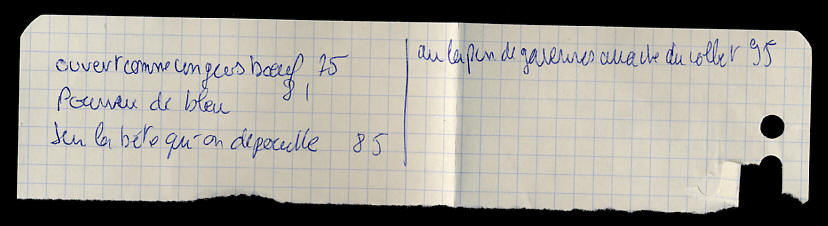 ouvert comme un gros bœuf 75
Pourvu de bleu 81
Sur la bête qu'on dépouille 85
au lapin de garennes arraché du collet 95